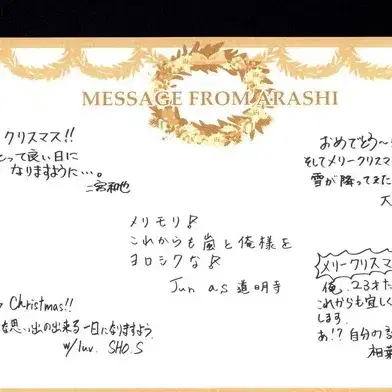 MESSAGE FROM ARASHI
クリスマス!!
とって良い日に
なりますように…。
二宮和也
おめでとう〜
そしてメリークリスマ
雪が降ってきた
メリモリ♪
これからも嵐と俺様を
ヨロシクな♪
Jun as 道明寺
Christmas!!
な思い出の出来る一日になりますよう
w/luv. SHO.S
メリークリスマ
俺、23才だ
これからも宜しく
します。
あ!?自分の
相葉